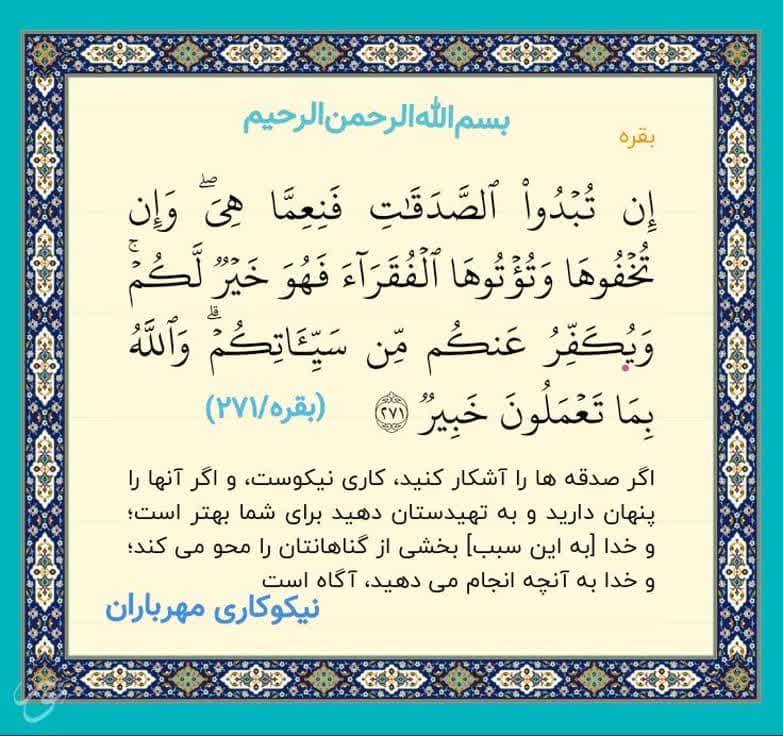 بسم الله الرحمن الرحیم
بقره
إِن تُبْدُوا۟ ٱلصَّدَقَـٰتِ فَنِعِمَّا هِىَ ۖ وَإِن
تُخْفُوهَا وَتُؤْتُوهَا ٱلْفُقَرَآءَ فَهُوَ خَيْرٌ لَّكُمْ ۚ
وَيُكَفِّرُ عَنكُم مِّن سَيِّـَٔاتِكُمْ ۗ وَٱللَّهُ
بِمَا تَعْمَلُونَ خَبِيرٌ ﴿٢٧١﴾ (بقره/۲۷۱)
اگر صدقه ها را آشکار کنید، کاری نیکوست، و اگر آنها را
پنهان دارید و به تهیدستان دهید برای شما بهتر است؛
و خدا [به این سبب] بخشی از گناهانتان را محو می کند؛
و خدا به آنچه انجام می دهید، آگاه است
نیکوکاری مهرباران